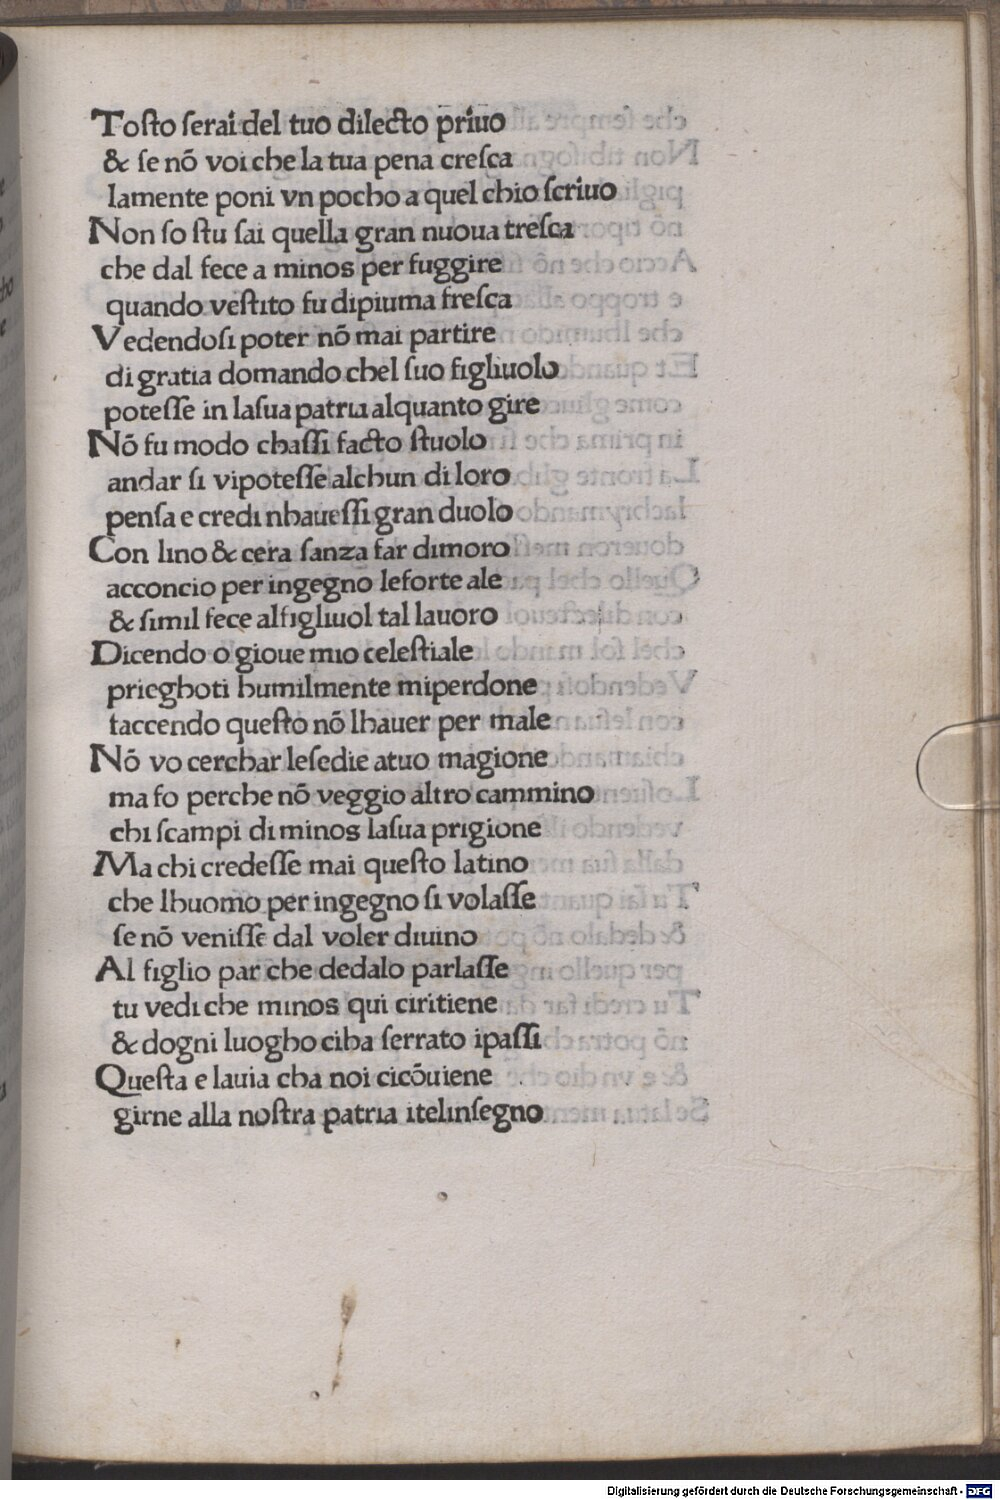 Toſto ſerai del tuo dilecto priuo
& ſe nõ voi che la tua pena creſca
lamente poni vn pocho a quel chio ſcriuo
Non ſo ſtu ſai quella gran nuoua treſca
che dal fece a minos per fuggire
quando veſtito fu dipiuma freſca
Vedendoſi poter nõ mai partire
di gratia domando chel ſuo figliuolo
poteſſe in laſua patria alquanto gire
Nõ fu modo chaſſi facto ſtuolo
andar ſi vipoteſſe alchun di loro
penſa e credi nhaueſſi gran duolo
Con lino & cera ſanza far dimoro
acconcio per ingegno leforte ale
& ſimil fece alfigliuol tal lauoro
Dicendo o gioue mio celeſtiale
prieghoti humilmente miperdone
faccendo queſto nõ lhauer per male
Nõ vo cerchar leſedie atuo magione
ma fo perche nõ veggio altro cammino
chi ſcampi di minos laſua prigione
Ma chi credeſſe mai queſto latino
che lhuomo per ingegno ſi volaſſe
ſe nõ veniſſe dal voler diuino
Al figlio par che dedalo parlaſſe
tu vedi che minos qui ciritiene
& dogni luogho ciha ſerrato ipaſſi
Queſta e lauia cha noi cicõuiene
girne alla noſtra patria itelinſegno
Digitalisierung gefördert durch die Deutsche Forschungsgemeinschaft - DFG